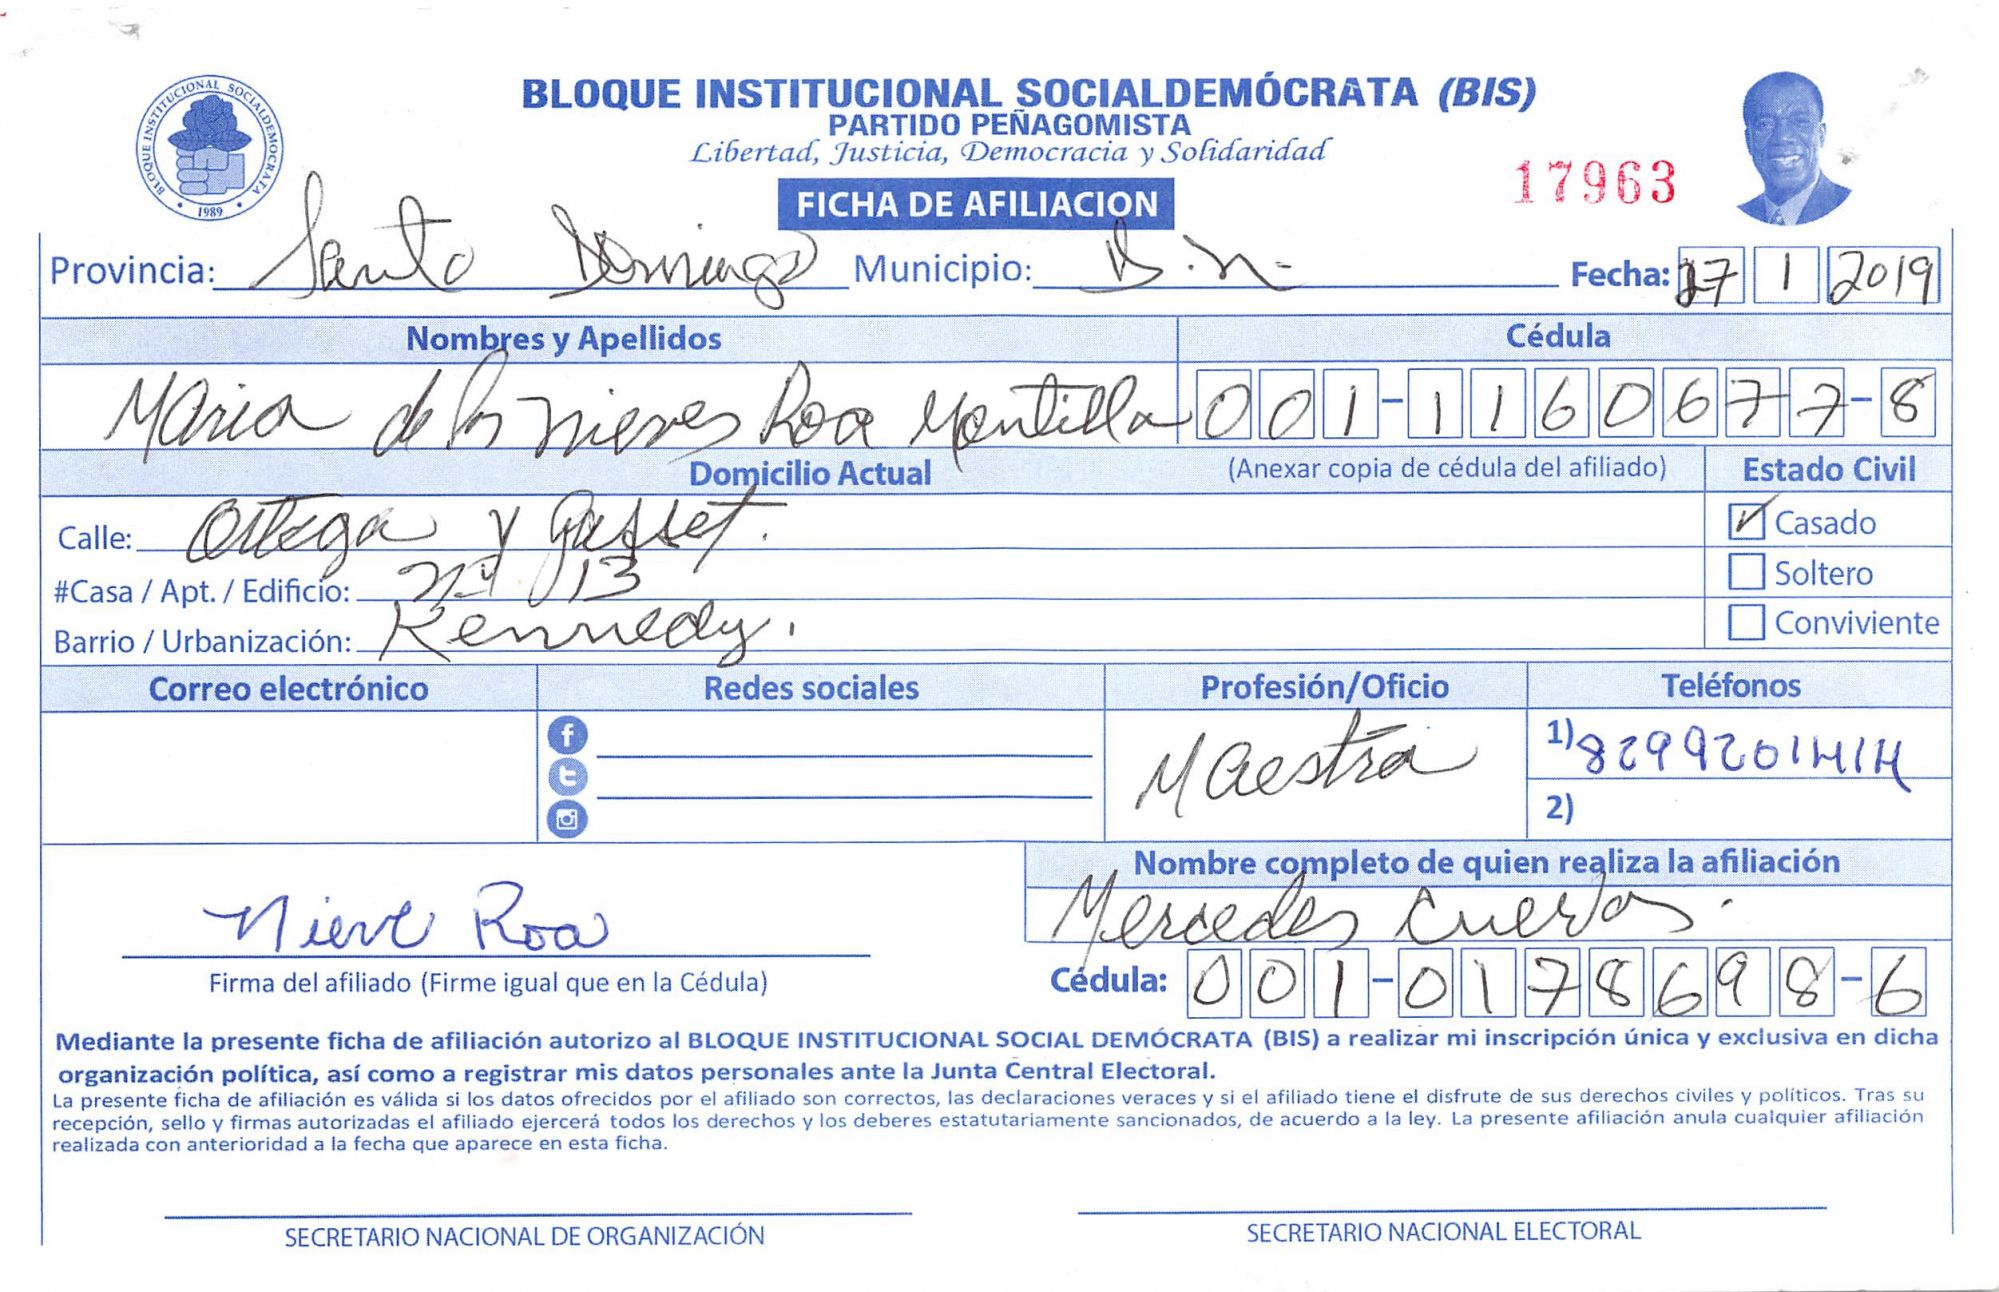 BLOQUE INSTITUCIONAL SOCIALDEMOCRATA
1989
BLOQUE INSTITUCIONAL SOCIALDEMÓCRATA (BIS)
PARTIDO PEÑAGOMISTA
Libertad, Justicia, Democracia y Solidaridad
17963
FICHA DE AFILIACION
Provincia: Santo Domingo Municipio: D.N. Fecha: 27 1 2019
Nombres y Apellidos Cédula
Maria de las nieves Roa Montilla 001-1160677-8
Domicilio Actual (Anexar copia de cédula del afiliado) Estado Civil
Calle: Ortega y Gasset. Casado
#Casa / Apt. / Edificio: Nº 13 Soltero
Barrio / Urbanización: Kennedy. Conviviente
Correo electrónico Redes sociales Profesión/Oficio Teléfonos
Maestra 1) 8299201414
2)
Nombre completo de quien realiza la afiliación
Nieve Roa Mercedes Cuevas.
Firma del afiliado (Firme igual que en la Cédula) Cédula: 001-0178698-6
Mediante la presente ficha de afiliación autorizo al BLOQUE INSTITUCIONAL SOCIAL DEMÓCRATA (BIS) a realizar mi inscripción única y exclusiva en dicha
organización política, así como a registrar mis datos personales ante la Junta Central Electoral.
La presente ficha de afiliación es válida si los datos ofrecidos por el afiliado son correctos, las declaraciones veraces y si el afiliado tiene el disfrute de sus derechos civiles y políticos. Tras su
recepción, sello y firmas autorizadas el afiliado ejercerá todos los derechos y los deberes estatutariamente sancionados, de acuerdo a la ley. La presente afiliación anula cualquier afiliación
realizada con anterioridad a la fecha que aparece en esta ficha.
SECRETARIO NACIONAL DE ORGANIZACIÓN SECRETARIO NACIONAL ELECTORAL